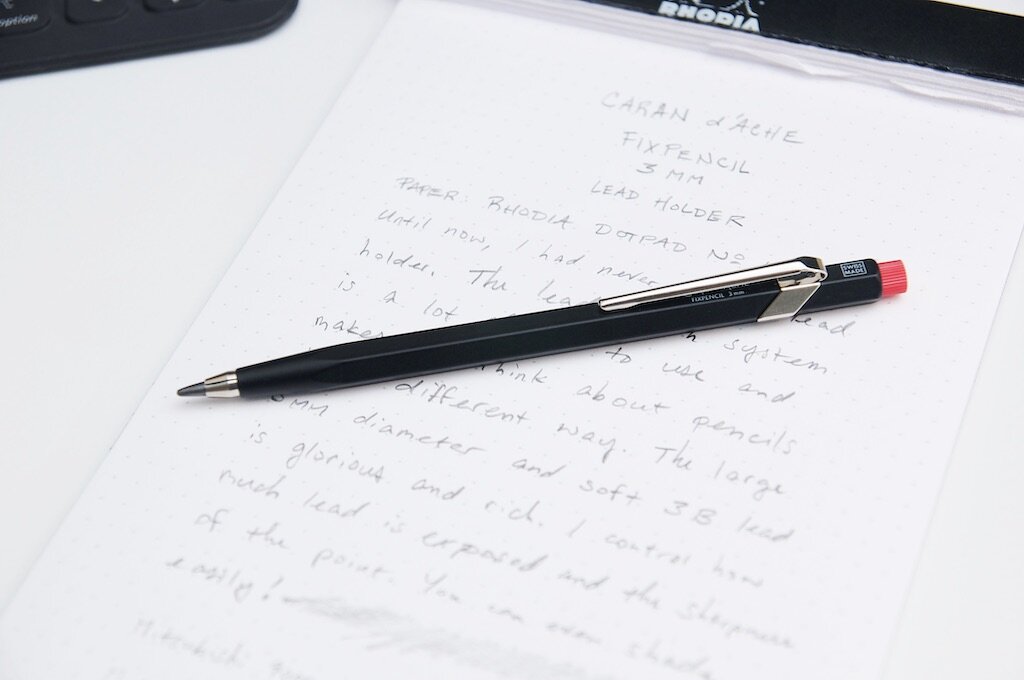 option
RHODIA
CARAN d'ACHE
FIXPENCIL
3 MM
LEAD HOLDER
PAPER: RHODIA DOTPAD No
Until now, I had never lead
holder. The lead system
is a lot to use and
makes think about pencils
different way. The large
3MM diameter and soft 3B lead
is glorious and rich. I control how
much lead is exposed and the sharpness
of the point. You can even shade
easily!
FIXPENCIL 3mm
SWISS
MADE